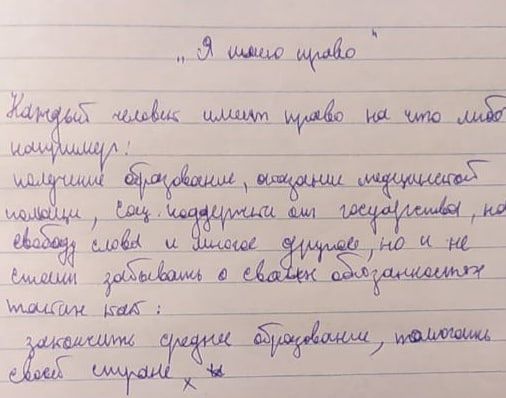 „Я имею право"
Каждый человек имеет право на что либо
например:
получение образование, оказании медицинской
помощи, соц. поддержки от государства, на
свободу слова и многое другое, но и не
стоит забывать о своих обязанностях
таких как:
закончить среднее образование, помогать
своей стране